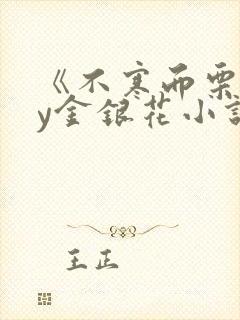 《不寒而栗
y金银花小说
王正